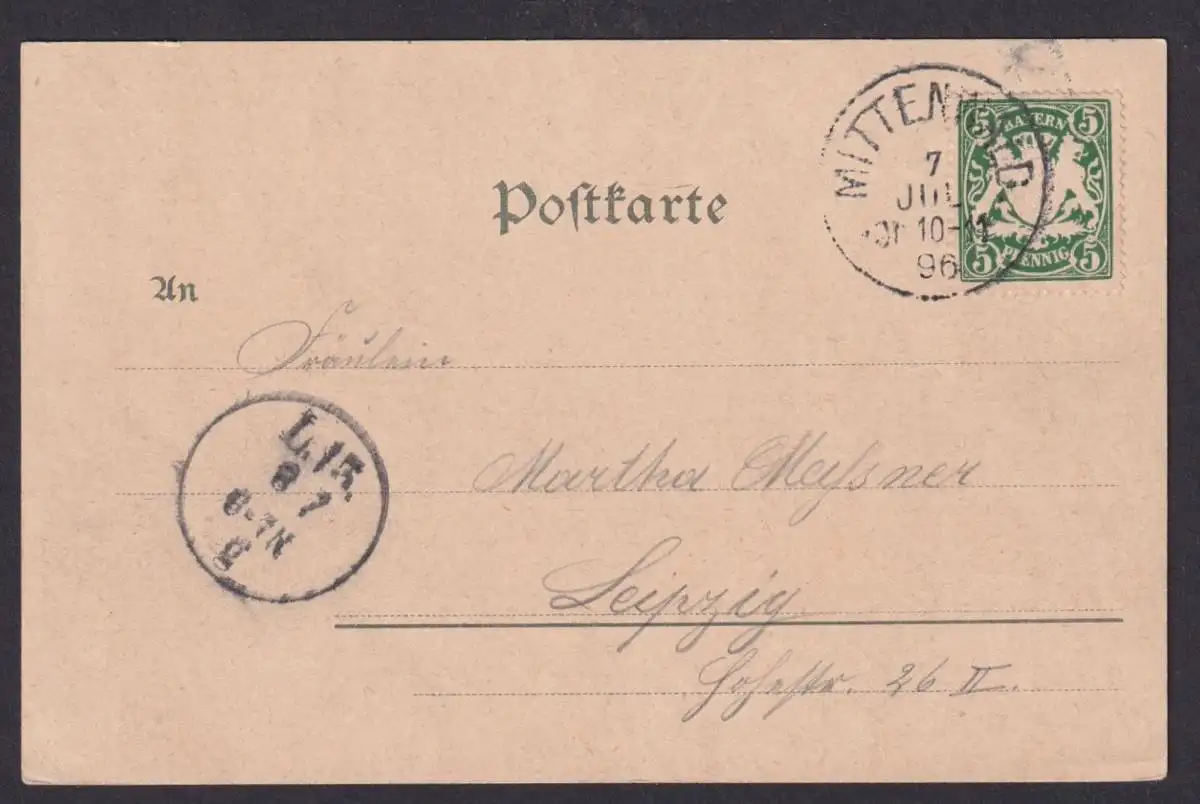 Postkarte
An
MITTENWALD
7
JUL
10-11
96
5 5
BAYERN
PFENNIG
5 5
Fräulein
Martha Meyssner
Leipzig
Hohestr. 26 II.
L. 15.
8 7
6-7N
g